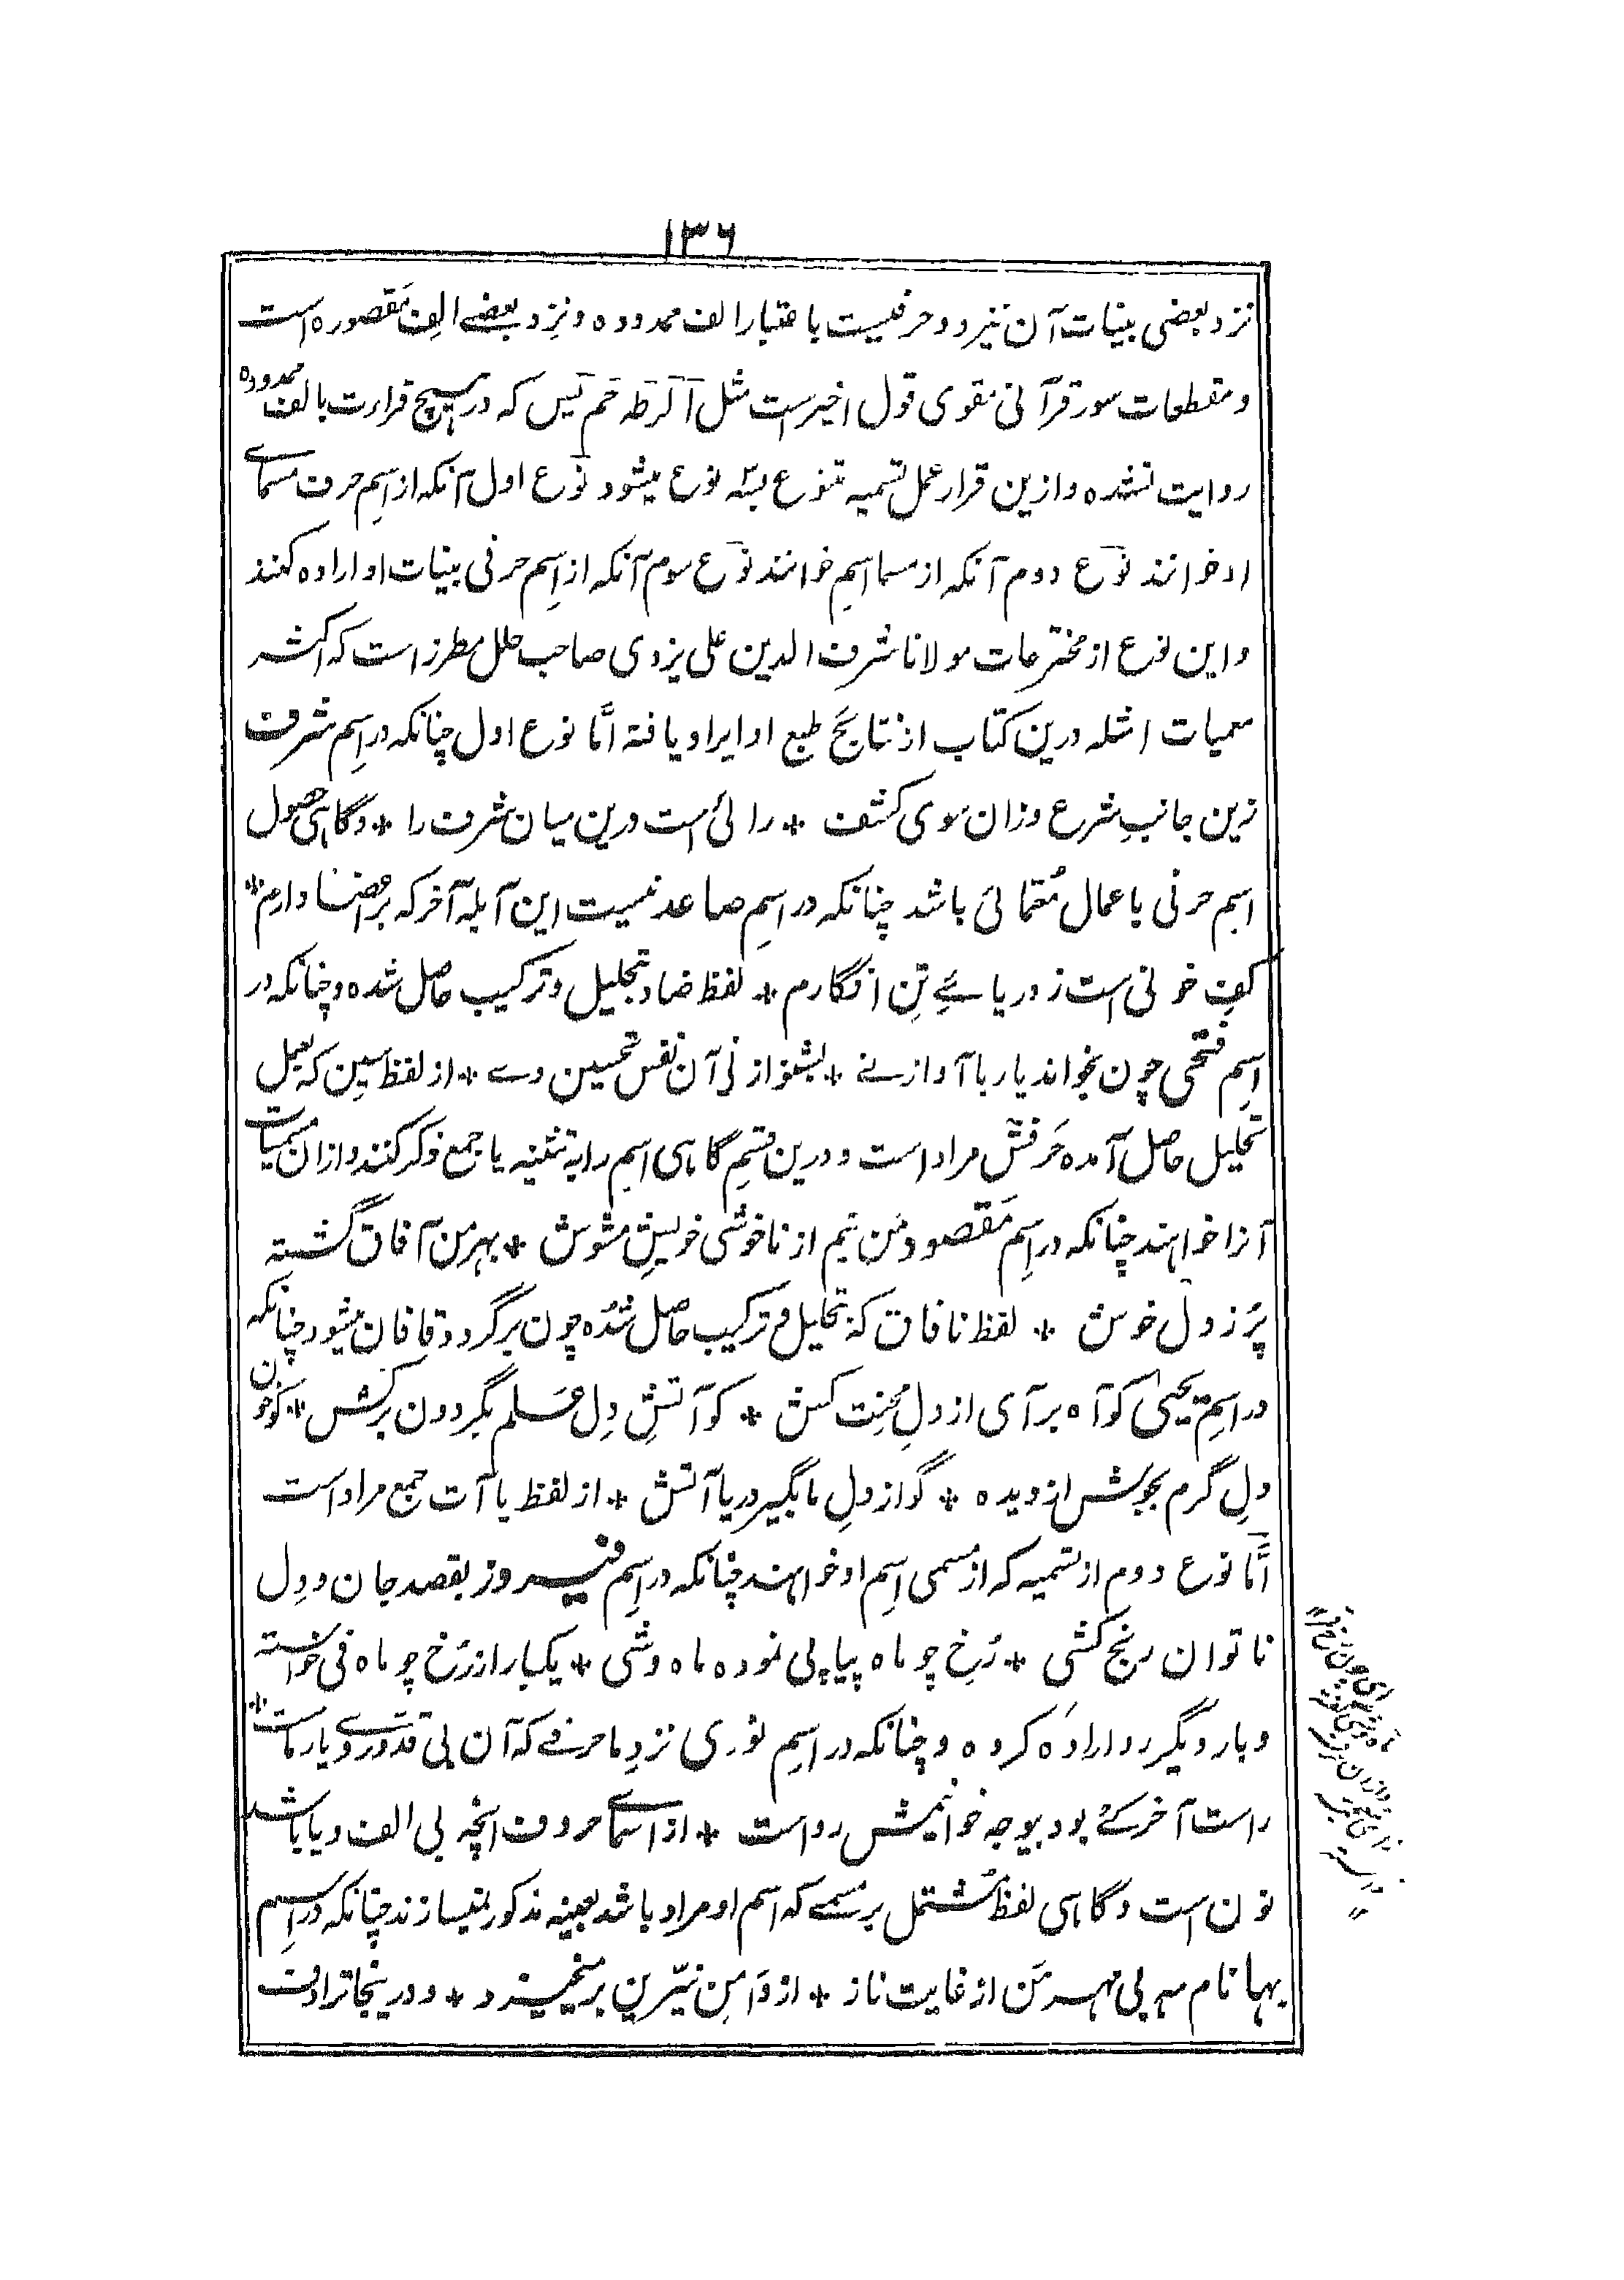 ۱۳۶
نزد بعضی بینات آن نیز دو حرفیست باعتبار الف ممدوده و نزد بعضے الف مقصوره است
و مقطعات سور قرآنی مقوی قول اخیر است مثل آلر طه حم یس که در هیچ قراءت بالف ممدوده
روایت نشده و ازین قرار عمل تسمیه متنوع بسه نوع میشود نوع اول آنکه از اسم حرف مسماے
او خوانند نوع دوم آنکه از مسما اسم خوانند نوع سوم آنکه از اسم حرفی بینات او اراده کنند
و این نوع از مخترعات مولانا شرف الدین علی یزدی صاحب حلل مطرز است که اکثر
معمیات امثله درین کتاب از نتایج طبع او ایراد یافته امّا نوع اول چنانکه در اسم شرف
زین جانب شرع و زان سوی کشف * رائی است درین میان شرف را * و گاهی حصول
اسم حرفی باعمال مُعمّائی باشد چنانکه در اسم صاعد نیست این آبله آخر که بر اعضا دارم *
کف خونی است ز دریائے تن افگارم * لفظ ضاد بتحلیل و ترکیب حاصل شده و چنانکه در
اسم فتحی چون بخواند یار با آواز نے * بشنو از نی آن نفس تحسین وے * از لفظ سین که بعمل
تحلیل حاصل آمده حرفش مراد است و درین قسم گاهی اسم را به تثنیه یا جمع ذکر کنند و ازان مسمیات
آنرا خواهند چنانکه در اسم مقصود من نیم از ناخوشی خویش مشوش * بهر من آفاق گشته
پُر ز دل خوش * لفظ نافاق که بتحلیل و ترکیب حاصل شده چون برگردد قافان میشود چنانکه
در اسم یحیی کو آه بر آی از دل محنت کش * کو آتش دل علم بگردون برکش * کو خون
دل گرم بجوش از دیده * گو از دل ما بگیر دریا آتش * از لفظ یا آت جمع مراد است
امّا نوع دوم از تسمیه که از مسمی اسم او خواهند چنانکه در اسم فیروز بقصد جان و دل
ناتوان رنج کشی * رُخ چو ماه پیاپی نموده ماه وشی * یکبار از رُخ چو ماه فی خواسته
و بار دیگر رو اراده کرده و چنانکه در اسم نوری نزد ما حرفے که آن بی قد و روی یار ماست *
راست آخر کے بود بیوجه خوانیمش رواست * از اسماے حروف انچه بی الف و یا باشد
نون است و گاهی لفظ مشتمل بر مسمے که اسم او مراد باشد بعینه مذکور نمیسازند چنانکه در اسم
بها نام مه بی مهر من از غایت ناز * از دامن نیّرین بر میخیزد * و درینجا ترادف